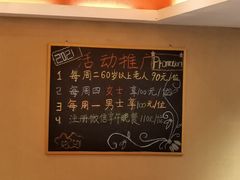 2021 活动推广 Promotion
1 每周二60岁以上老人 90元/位
2 每周四女士享100元/位
3 每周一男士享100元/位
4 注册微信享午晚费110元/位